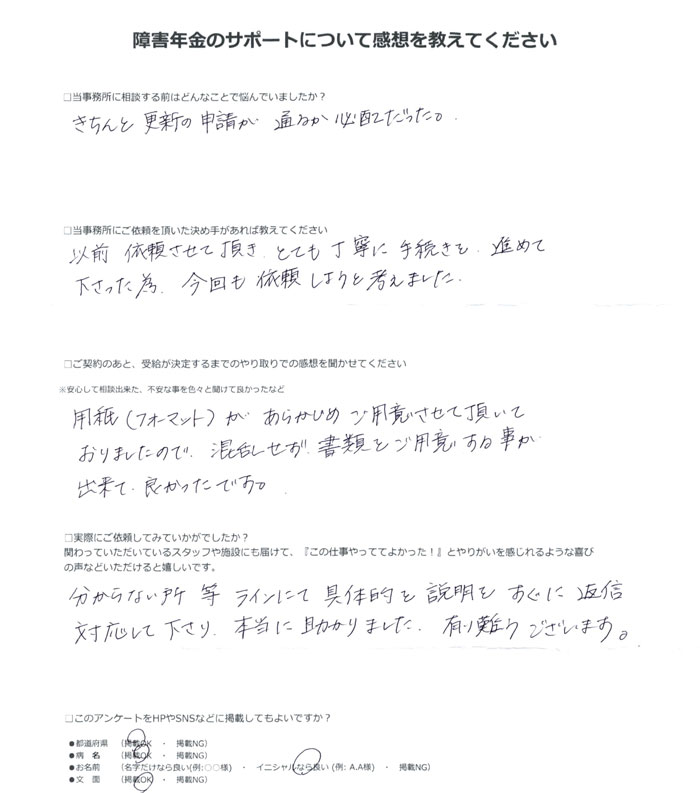 障害年金のサポートについて感想を教えてください
□当事務所に相談する前はどんなことで悩んでいましたか？
きちんと更新の申請が通るか心配だった。
□当事務所にご依頼を頂いた決め手があれば教えてください
以前依頼させて頂き、とても丁寧に手続きを、進めて
下さった為、今回も依頼しようと考えました。
□ご契約のあと、受給が決定するまでのやり取りでの感想を聞かせてください
※安心して相談出来た、不安な事を色々と聞けて良かったなど
用紙(フォーマット)があらかじめご用意させて頂いて
おりましたので、混乱せず、書類をご用意する事が
出来て、良かったです。
□実際にご依頼してみていかがでしたか？
関わっていただいているスタッフや施設にも届けて、『この仕事やっててよかった！』とやりがいを感じれるような喜び
の声などいただけると嬉しいです。
分からない所等ラインにて具体的を説明をすぐに返信
対応して下さり、本当に助かりました。有り難うございます。
□このアンケートをHPやSNSなどに掲載してもよいですか？
●都道府県　（掲載OK　・　掲載NG）
●病　名　（掲載OK　・　掲載NG）
●お名前　（名字だけなら良い(例:〇〇様)　・　イニシャルなら良い (例: A.A様)　・　掲載NG）
●文　面　（掲載OK　・　掲載NG）